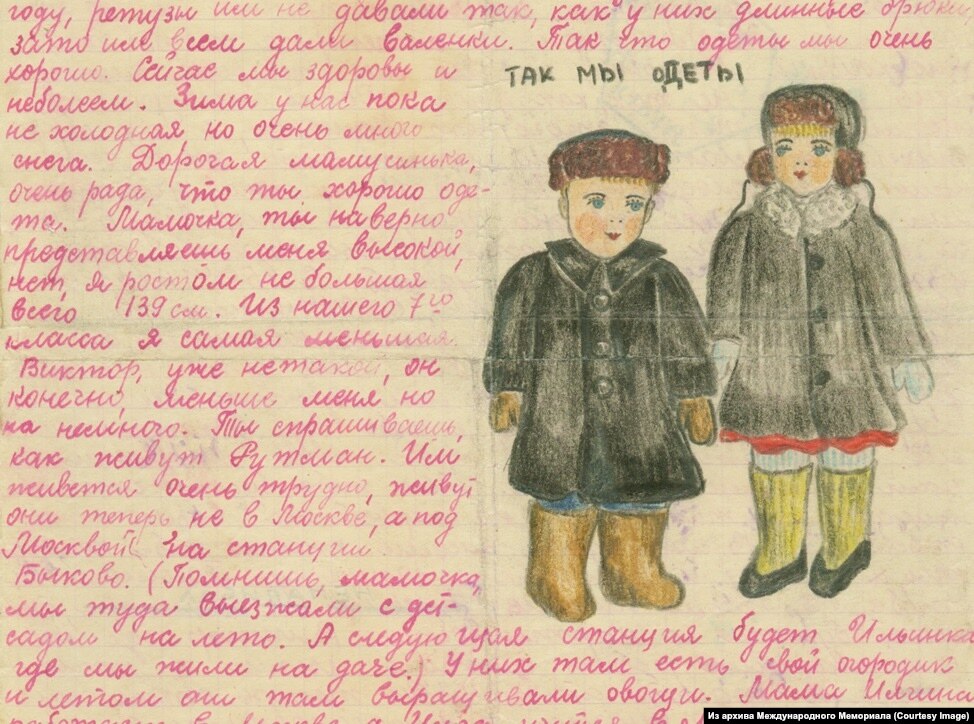 году, ретузы им не давали так, как у них длинные брюки,
зато им всем дали валенки. Так что одеты мы очень
хорошо. Сейчас мы здоровы и
неболеем. Зима у нас пока
не холодная но очень много
снега. Дорогая мамусинька,
очень рада, что ты хорошо оде-
та. Мамочка, ты наверно
представляешь меня высокой,
нет, я ростом не большая
всего 139 см. Из нашего 7го
класса я самая меньшая.
Виктор, уже не такой, он
конечно, меньше меня но
на немного. Ты спрашиваешь,
как живут Рутман. Им
живется очень трудно, живут
они теперь не в Москве, а под
Москвой на станции
Быково. (Помнишь, мамочка,
мы туда выезжали с дет-
садом на лето. А следующая станция будет Ильинка
где мы жили на даче.) У них там есть свой огородик
и летом они там выращивали овощи. Мама
ТАК МЫ ОДЕТЫ
Из архива Международного Мемориала (Courtesy Image)